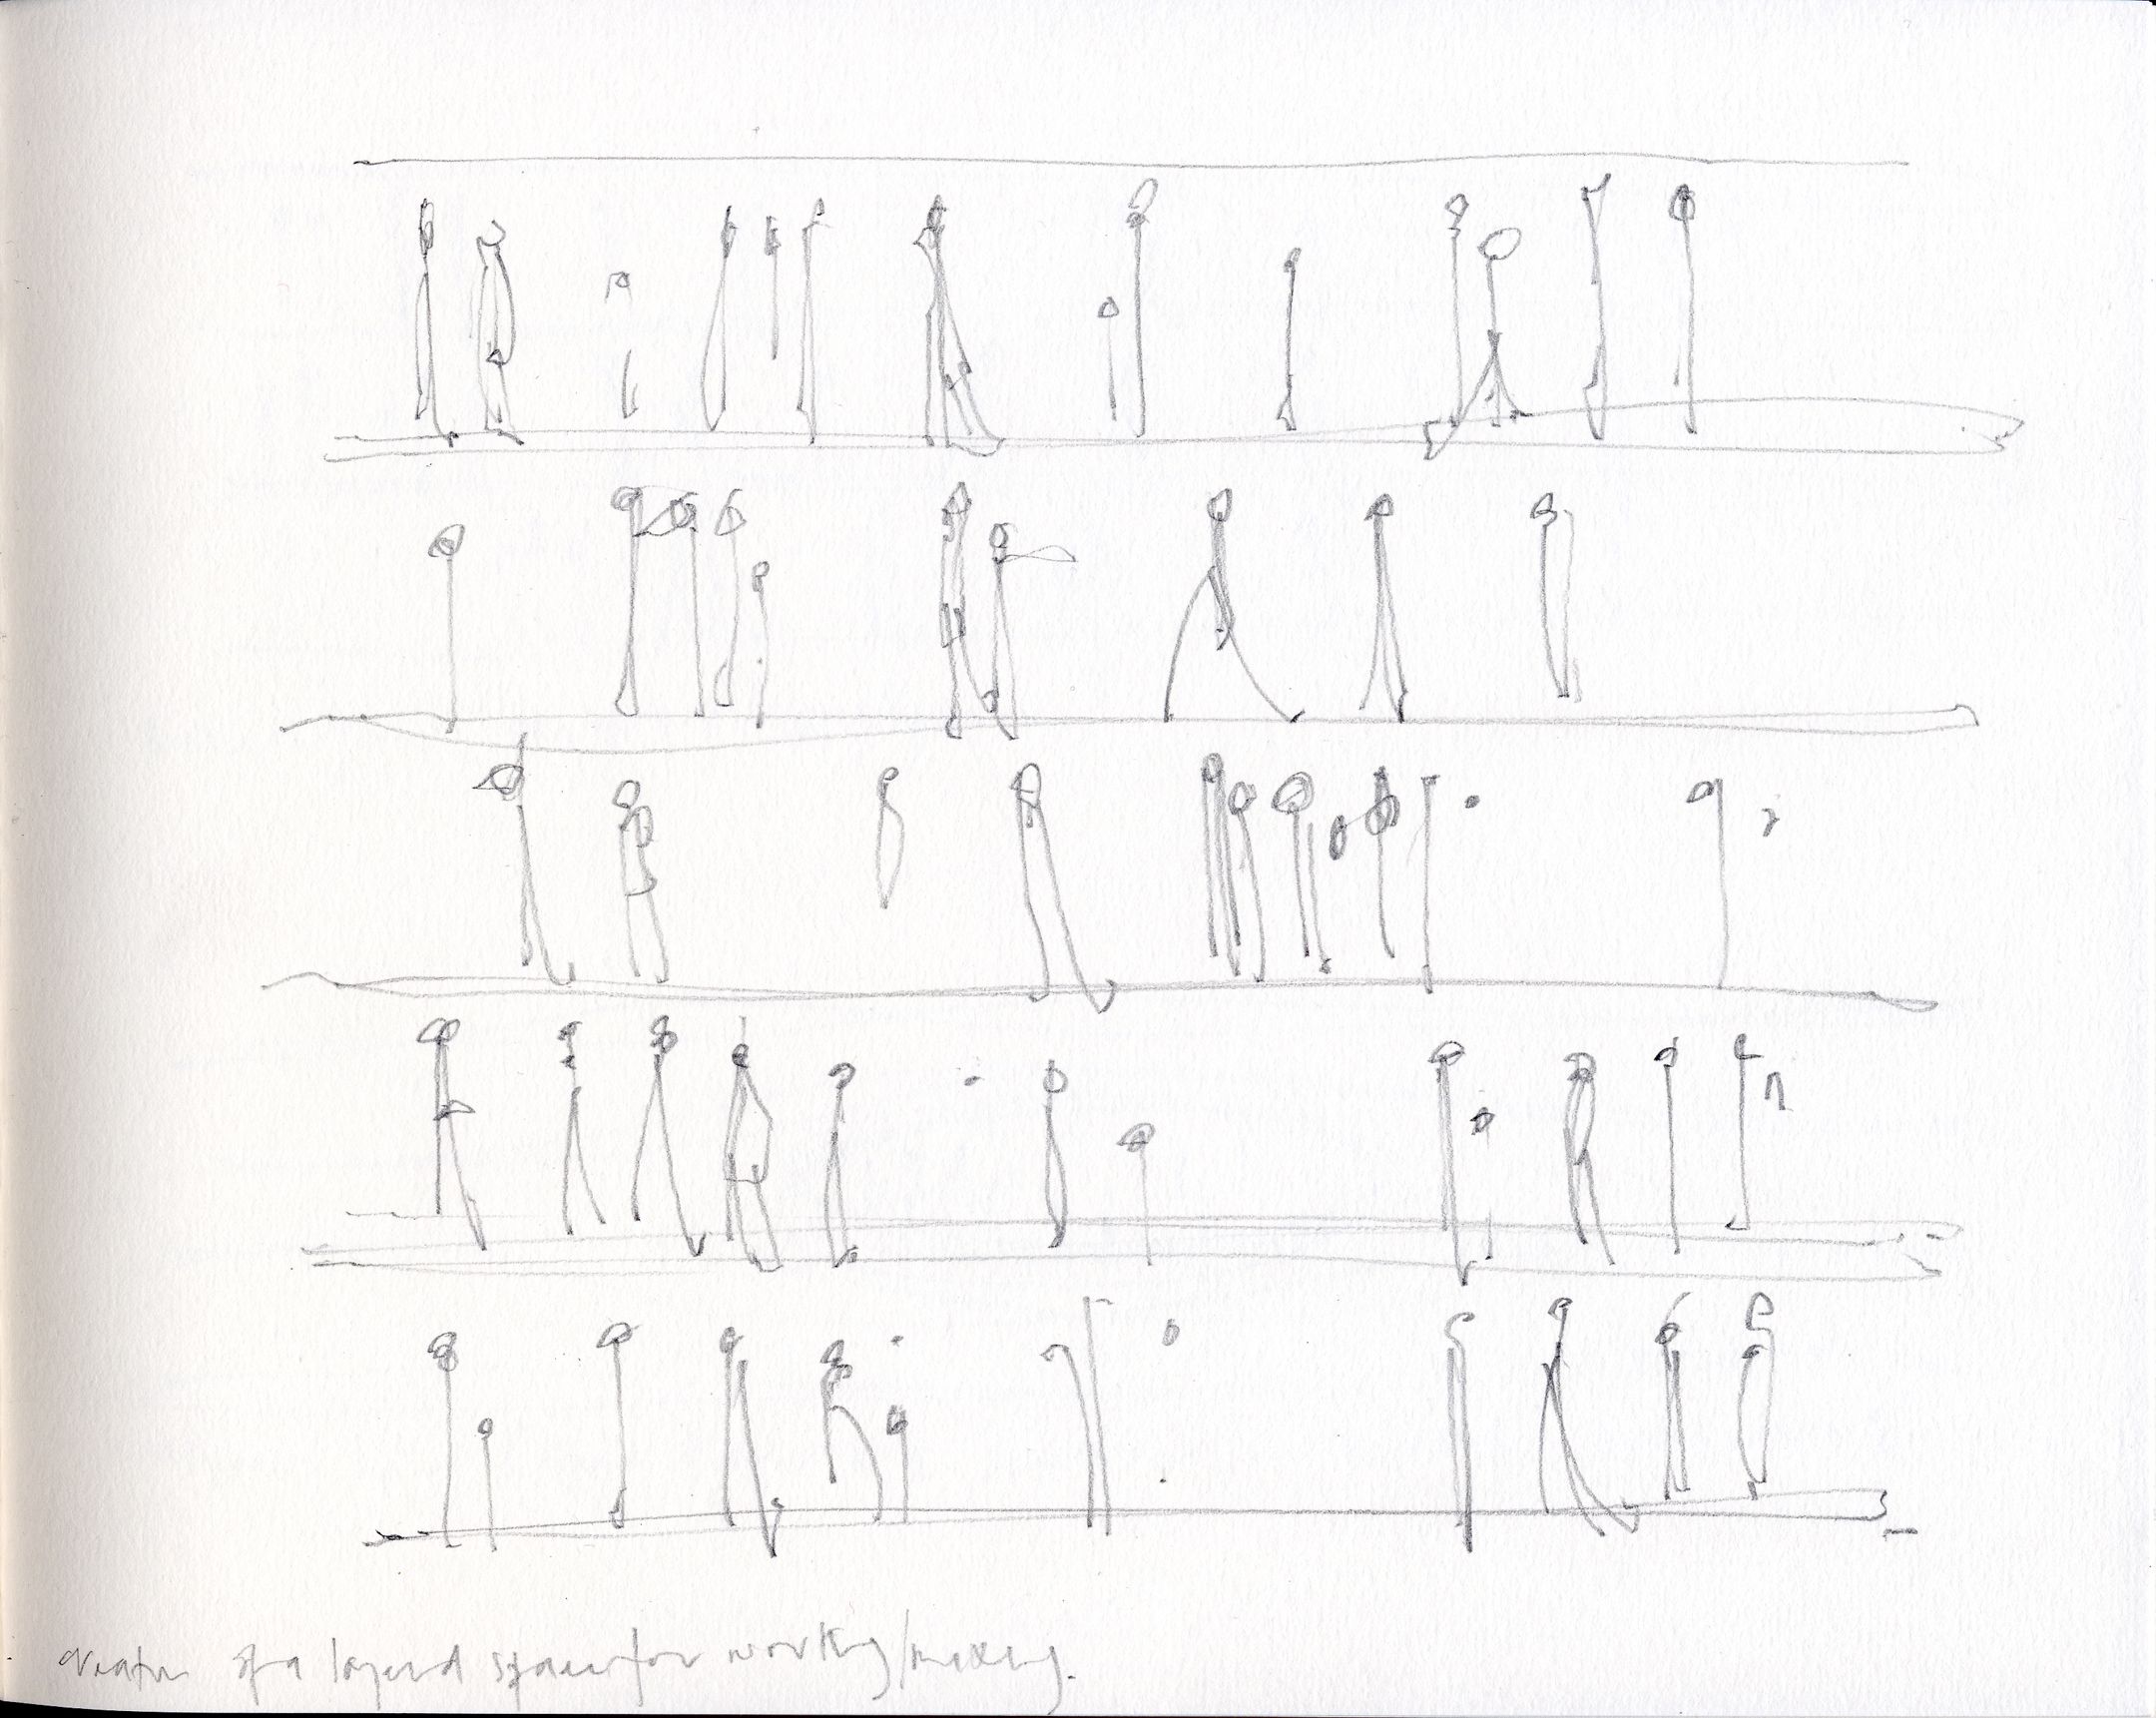 Creation of a layered space for working/making.